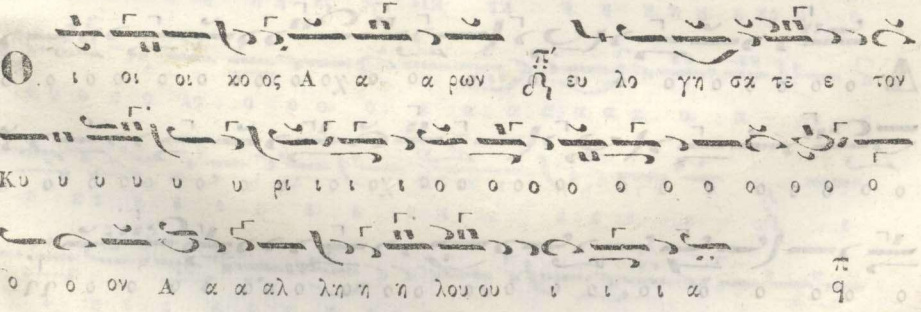 Ο ι οι οι κο ος Α α α ρων π̈ ευ λο γη σα τε ε τον
Κυ υ υ υ υ υ ρι ι ι ι ο ο ο ο ο ο ο ο ο ο ο ο
ο ο ον Α α α αλ λη η η λου ου ι ι ι α π